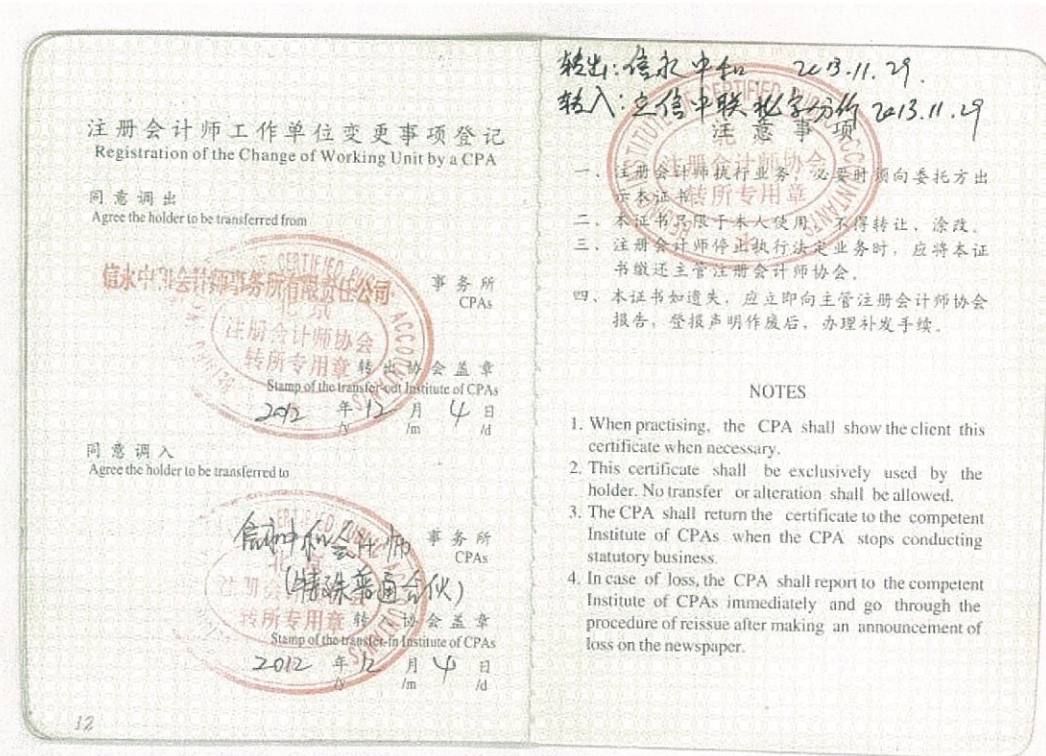 注册会计师工作单位变更事项登记
Registration of the Change of Working Unit by a CPA
同意调出
Agree the holder to be transferred from
信永中和会计师事务所有限责任公司
事务所
CPAs
北京
注册会计师协会
转所专用章
转出协会盖章
Stamp of the transfer-out Institute of CPAs
2012 年 12 月 4 日
/y /m /d
同意调入
Agree the holder to be transferred to
信永中和会计师 事务所
CPAs
(特殊普通合伙)
北京
注册会计师协会
转所专用章
转入协会盖章
Stamp of the transfer-in Institute of CPAs
2012 年 12 月 4 日
/y /m /d
12
转出:信永中和 2013.11.29.
转入:立信中联北京分所 2013.11.29
注意事项
注册会计师协会
转所专用章
一、注册会计师执行业务,必要时须向委托方出
示本证书。
二、本证书只限于本人使用,不得转让、涂改。
三、注册会计师停止执行法定业务时,应将本证
书缴还主管注册会计师协会。
四、本证书如遗失,应立即向主管注册会计师协会
报告,登报声明作废后,办理补发手续。
NOTES
1. When practising, the CPA shall show the client this
certificate when necessary.
2. This certificate shall be exclusively used by the
holder. No transfer or alteration shall be allowed.
3. The CPA shall return the certificate to the competent
Institute of CPAs when the CPA stops conducting
statutory business.
4. In case of loss, the CPA shall report to the competent
Institute of CPAs immediately and go through the
procedure of reissue after making an announcement of
loss on the newspaper.